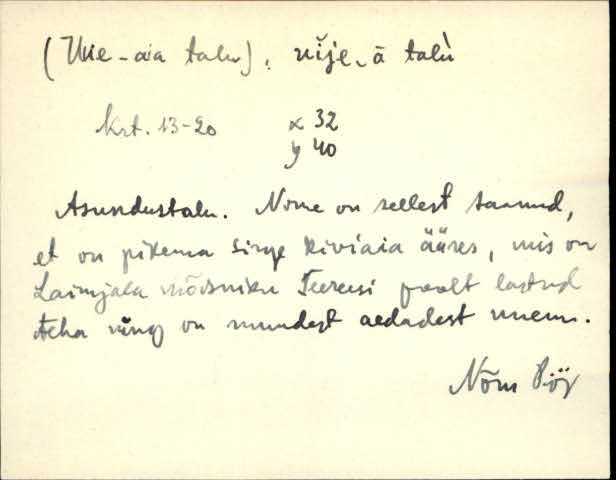 (Uue-aia talu), ũije-ā talù
krt. 13-20 x 32
y 40
Asundustalu. Nime on sellest saanud,
et on pikema sirge kiviaia ääres, mis on
Laimjala mõisniku poolt lastud
teha ning on muudest aedadest uuem.
Nõm Pöj